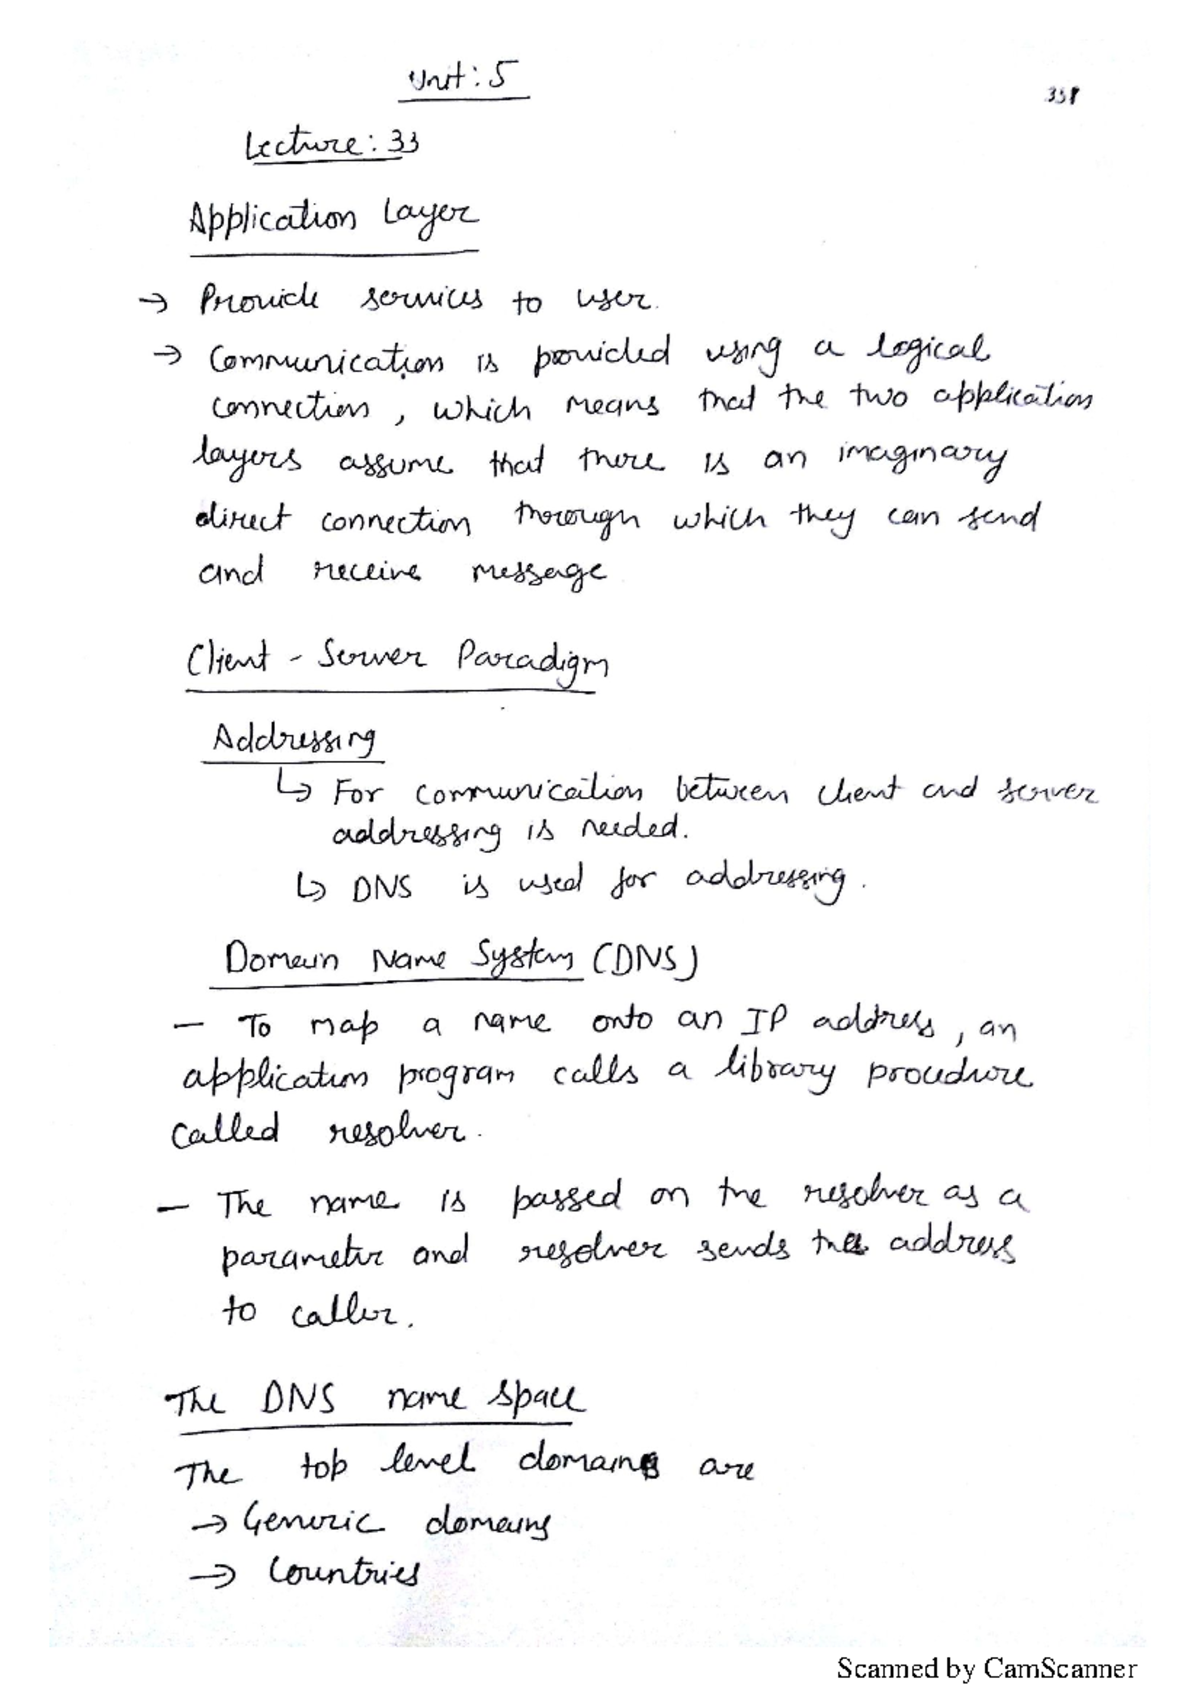 Unit: 5
Lecture: 33
Application Layer
→ Provide services to user.
→ Communication is provided using a logical
connection, which means that the two application
layers assume that there is an imaginary
direct connection thorough which they can send
and receive message
Client - Server Paradigm
Addressing
↳ For communication between client and server
addressing is needed.
↳ DNS is used for addressing.
Domain Name System (DNS)
— To map a name onto an IP address, an
application program calls a library procedure
called resolver.
— The name is passed on the resolver as a
parameter and resolver sends the address
to caller.
The DNS name space
The top level domains are
→ Generic domains
→ Countries
Scanned by CamScanner